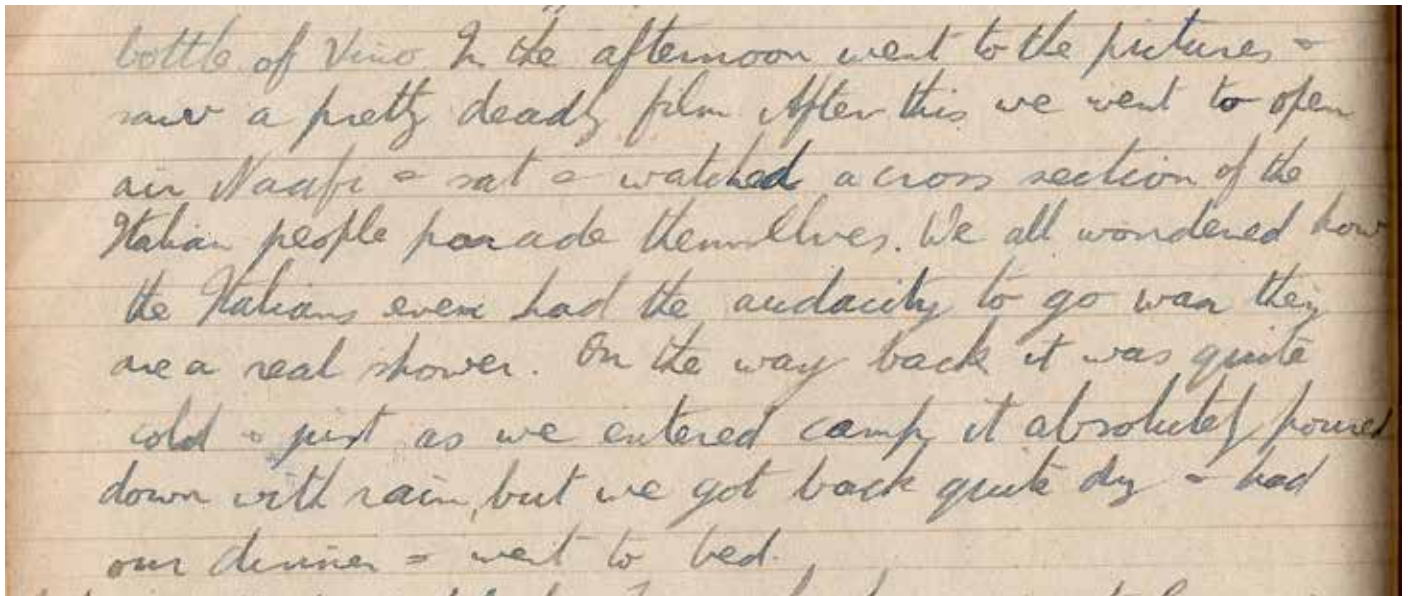 bottle of Vino In the afternoon went to the pictures &
saw a pretty deadly film After this we went to open
air Naafi & sat & watched a cross section of the
Italian people parade themsellves. We all wondered how
the Italians even had the audacity to go war they
are a real shower. On the way back it was quite
cold & just as we entered camp it absolutely poured
down with rain, but we got back quite dry & had
our dinner & went to bed.